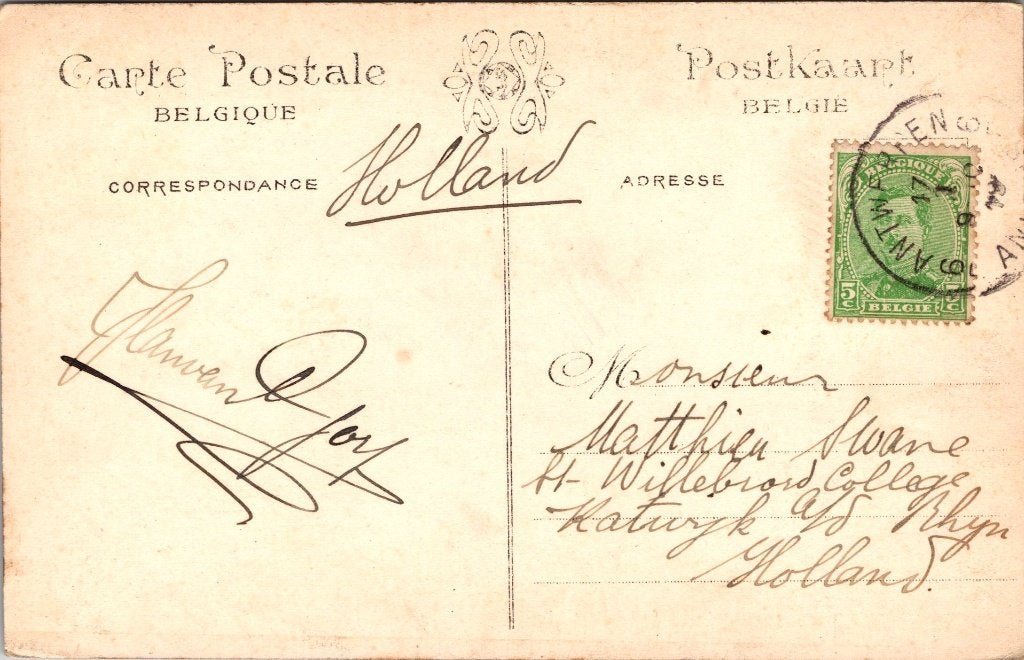 Carte Postale
BELGIQUE
Postkaart
BELGIË
CORRESPONDANCE
Holland
ADRESSE
ANTWERPEN
17
BELGIQUE
5c
5c
BELGIE
Monsieur
Matthieu Swane
St- Willebrord College
Katwyk a/d Rhyn
Holland.